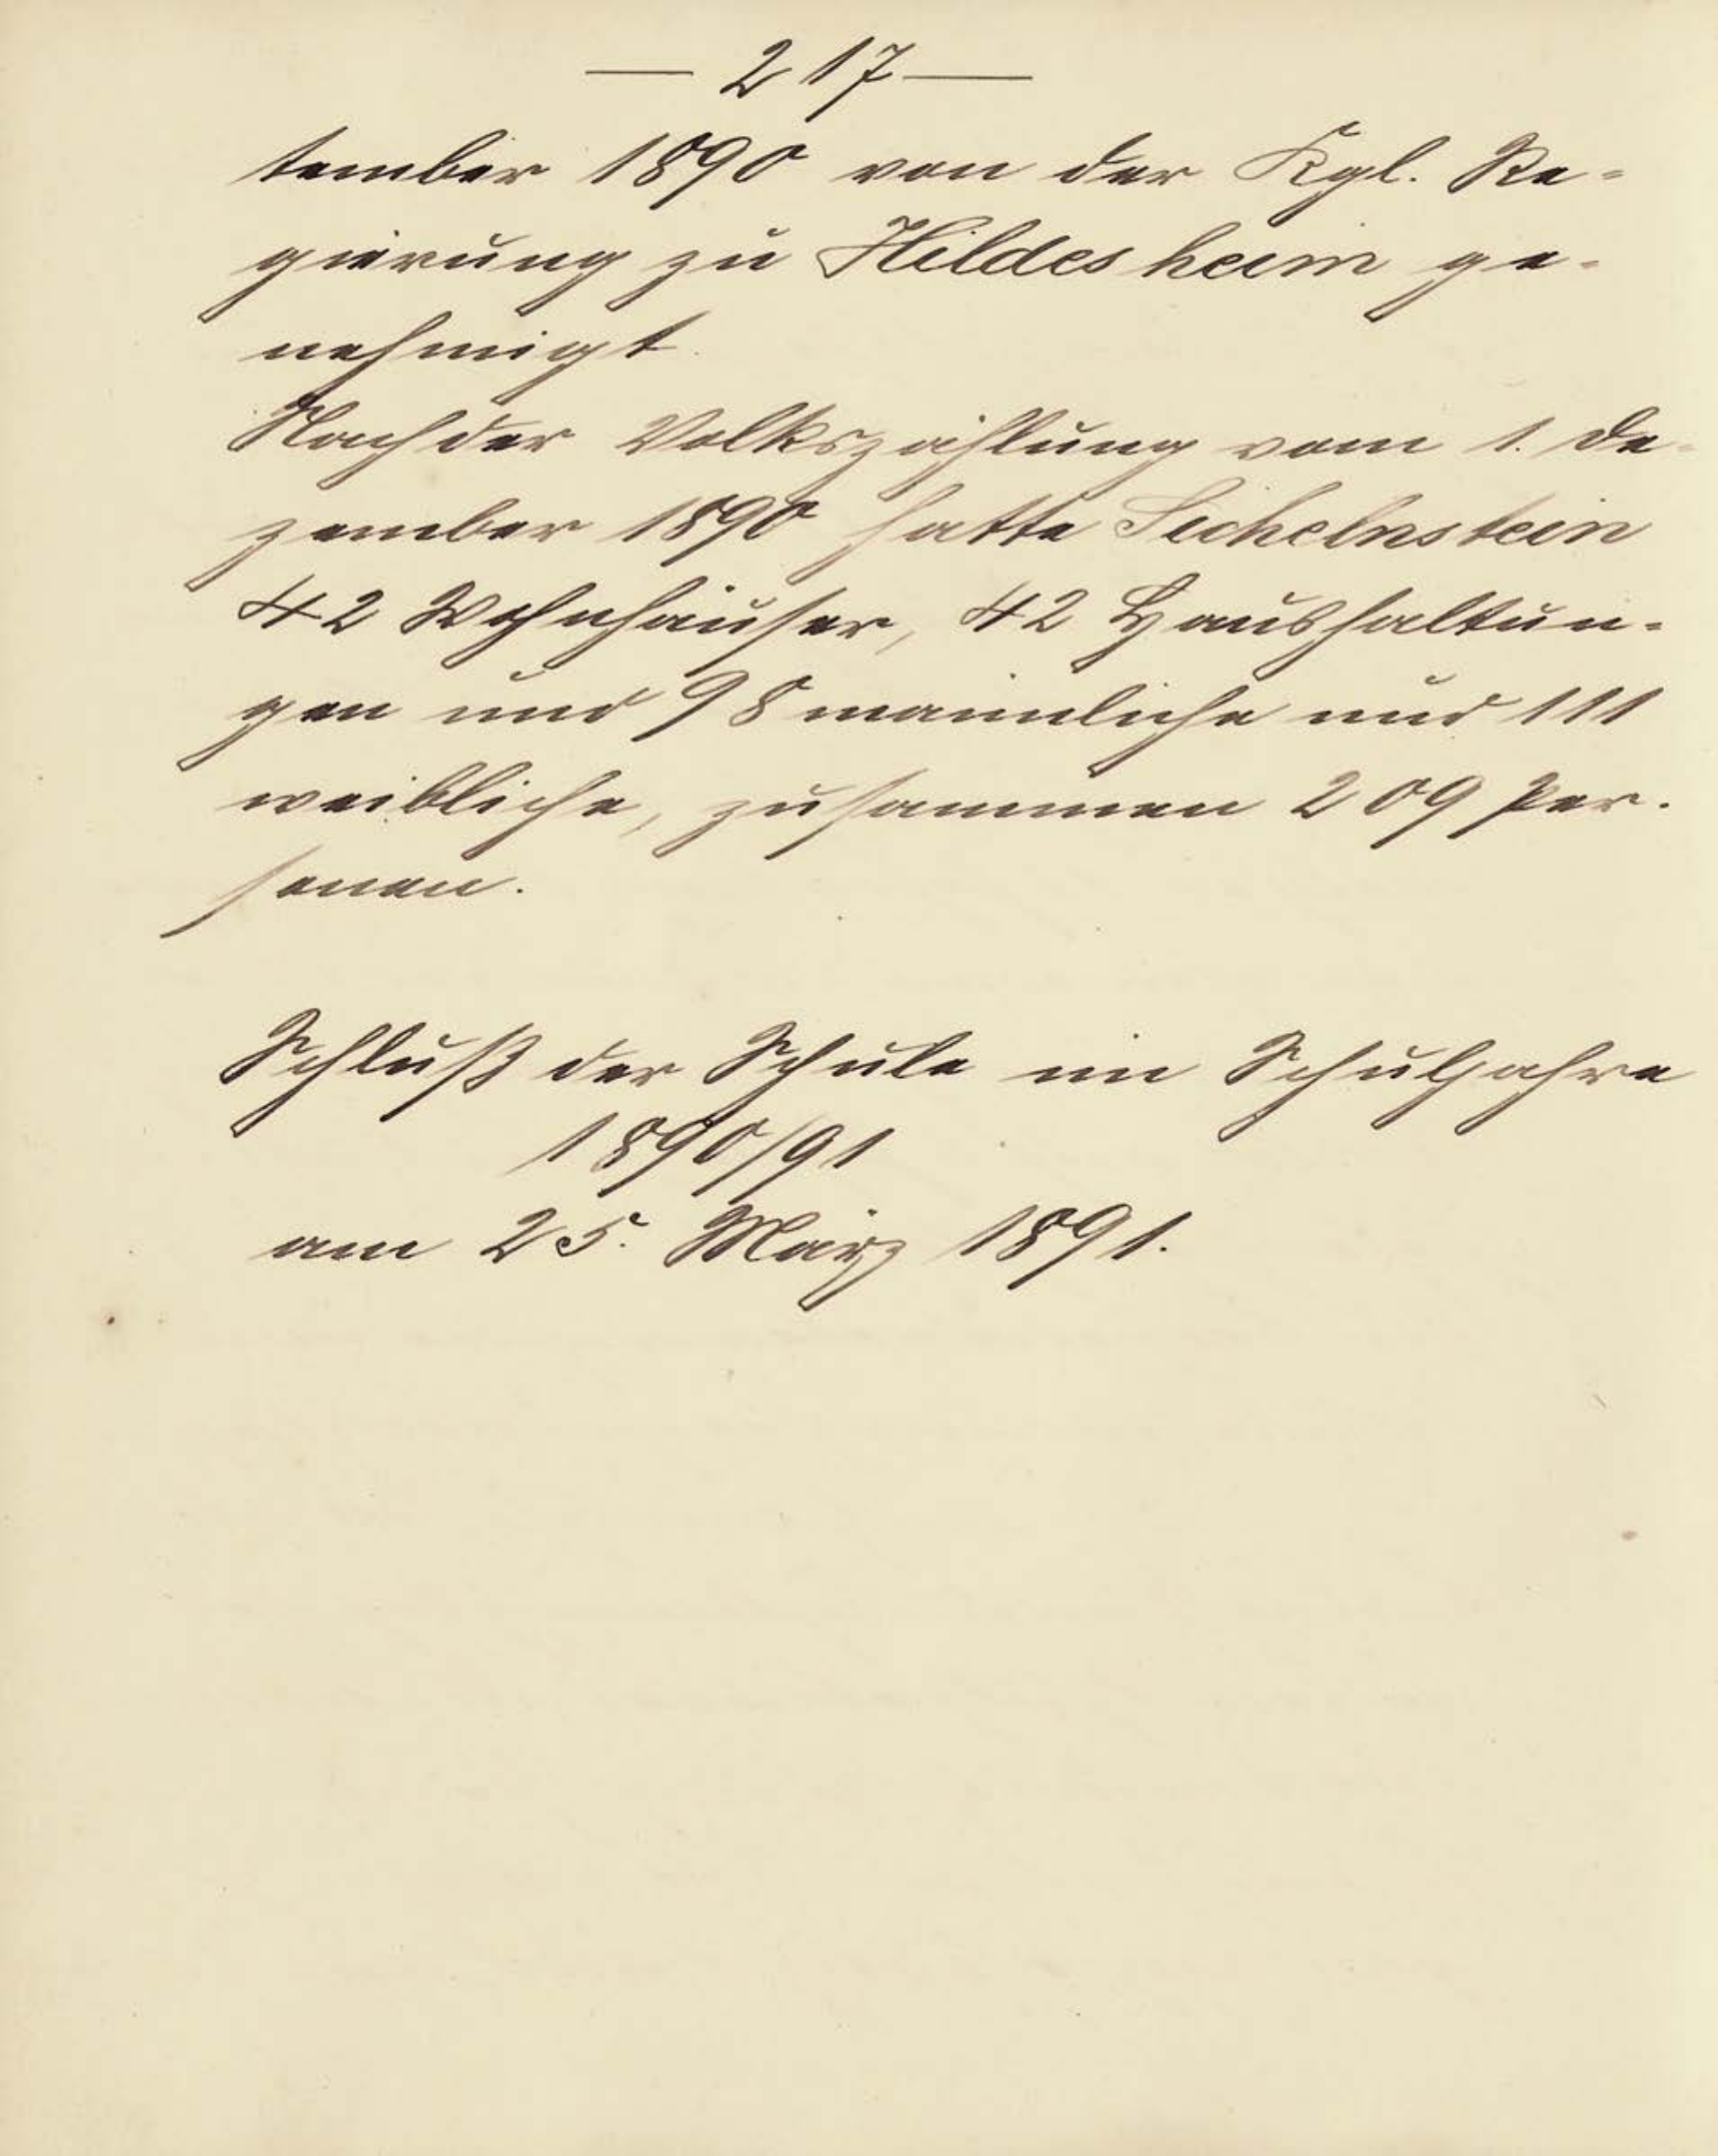 — 217 —
tember 1890 von der Kgl. Re-
gierung zu Hildesheim ge-
nehmigt.
Nach der Volkszählung vom 1. De-
zember 1890 hatte Sichelnstein
42 Wohnhäuser, 42 Haushaltun-
gen und 98 männliche und 111
weibliche, zusammen 209 Per-
sonen.
Schluß der Schule im Schuljahre
1890/91
am 25. März 1891.